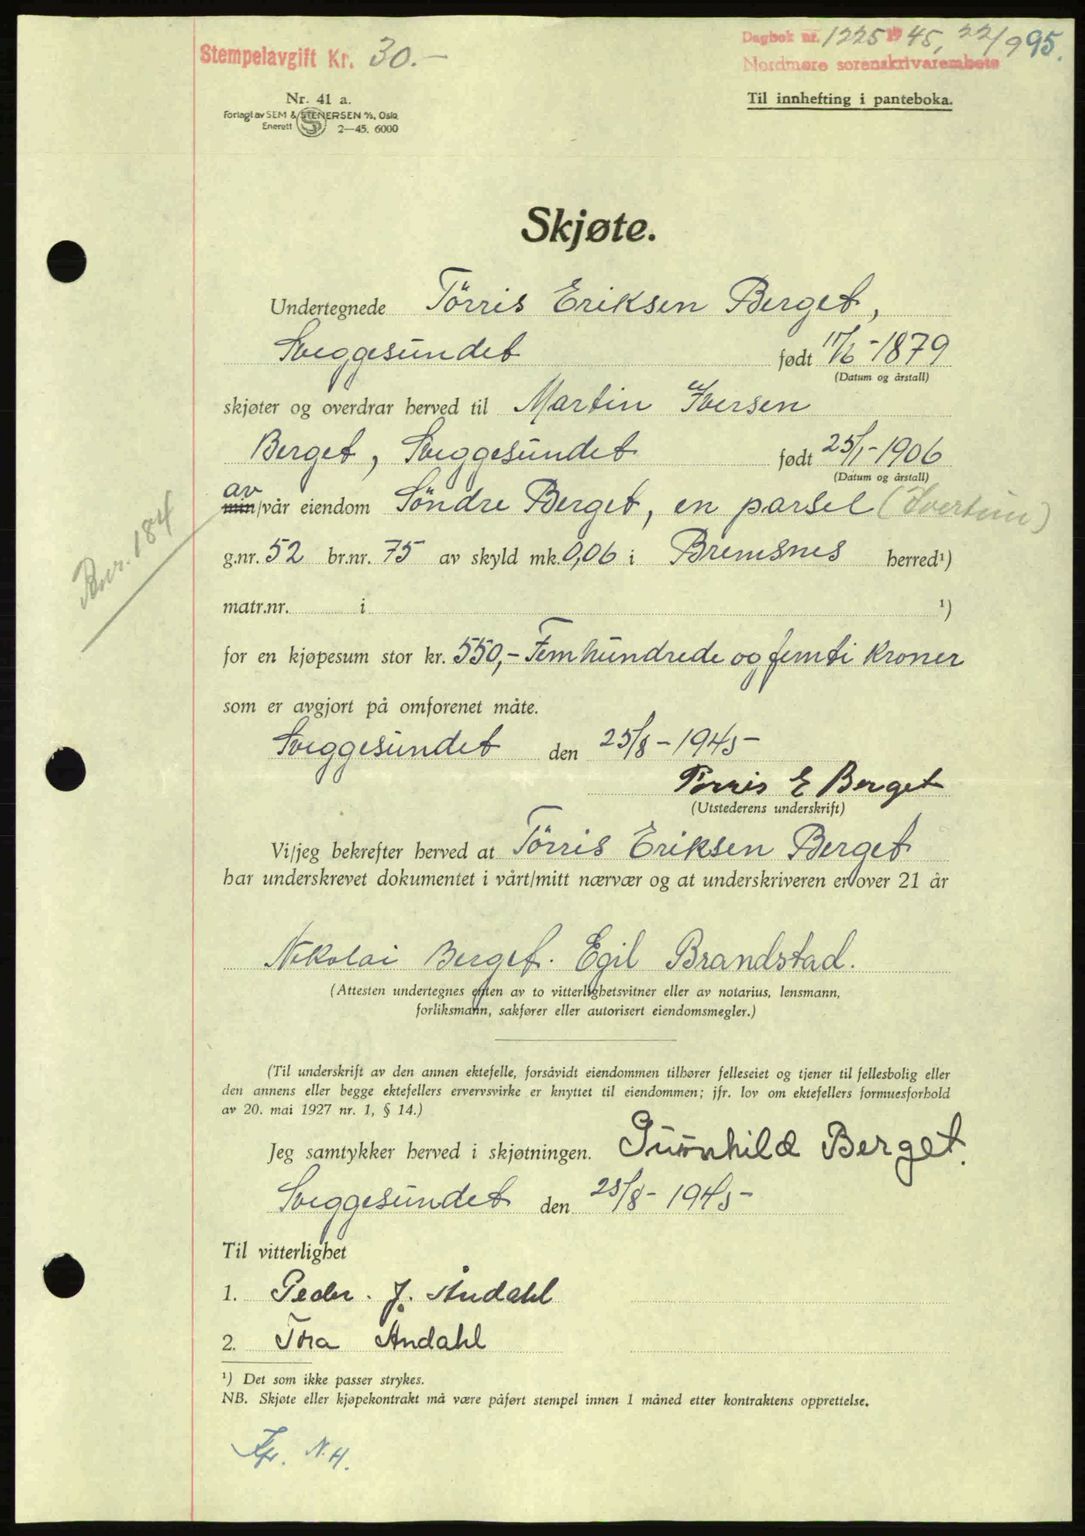 Stempelavgift Kr. 30.-
Dagbok nr. 1225 1945, 22/9 95.
Nordmøre sorenskrivarembete
Nr. 41 a.
Forlagt av SEM & STENERSEN A/S, Oslo
Enerett 2—45. 6000
Til innhefting i panteboka.
Skjøte.
Undertegnede Tørris Eriksen Berget,
Sveggesundet født 11/6-1879
(Datum og årstall)
skjøter og overdrar herved til Martin Iversen
Berget, Sveggesundet født 25/1-1906
(Datum og årstall)
av
min/vår eiendom Söndre Berget, en parsel
g.nr. 52 br.nr. 75 av skyld mk. 0,06 i Bremsnes herred¹)
Bnr. 184
matr.nr. i ¹)
for en kjøpesum stor kr. 550,- Femhundrede og femti Kroner
som er avgjort på omforenet måte.
Sveggesundet den 25/8-1945-
Tørris E Berget
(Utstederens underskrift)
Vi/jeg bekrefter herved at Törris Eriksen Berget
har underskrevet dokumentet i vårt/mitt nærvær og at underskriveren er over 21 år
Nikolai Berget. Egil Brandstad.
(Attesten undertegnes enten av to vitterlighetsvitner eller av notarius, lensmann,
forliksmann, sakfører eller autorisert eiendomsmegler.)
(Til underskrift av den annen ektefelle, forsåvidt eiendommen tilhører felleseiet og tjener til fellesbolig eller
den annens eller begge ektefellers ervervsvirke er knyttet til eiendommen; jfr. lov om ektefellers formuesforhold
av 20. mai 1927 nr. 1, § 14.)
Jeg samtykker herved i skjøtningen. Gunnhild Berget.
Sveggesundet den 25/8-1945-
Til vitterlighet
1. Peder. J. Åndahl
2. Tora Åndahl
¹) Det som ikke passer strykes.
NB. Skjøte eller kjøpekontrakt må være påført stempel innen 1 måned etter kontraktens opprettelse.
N.H.